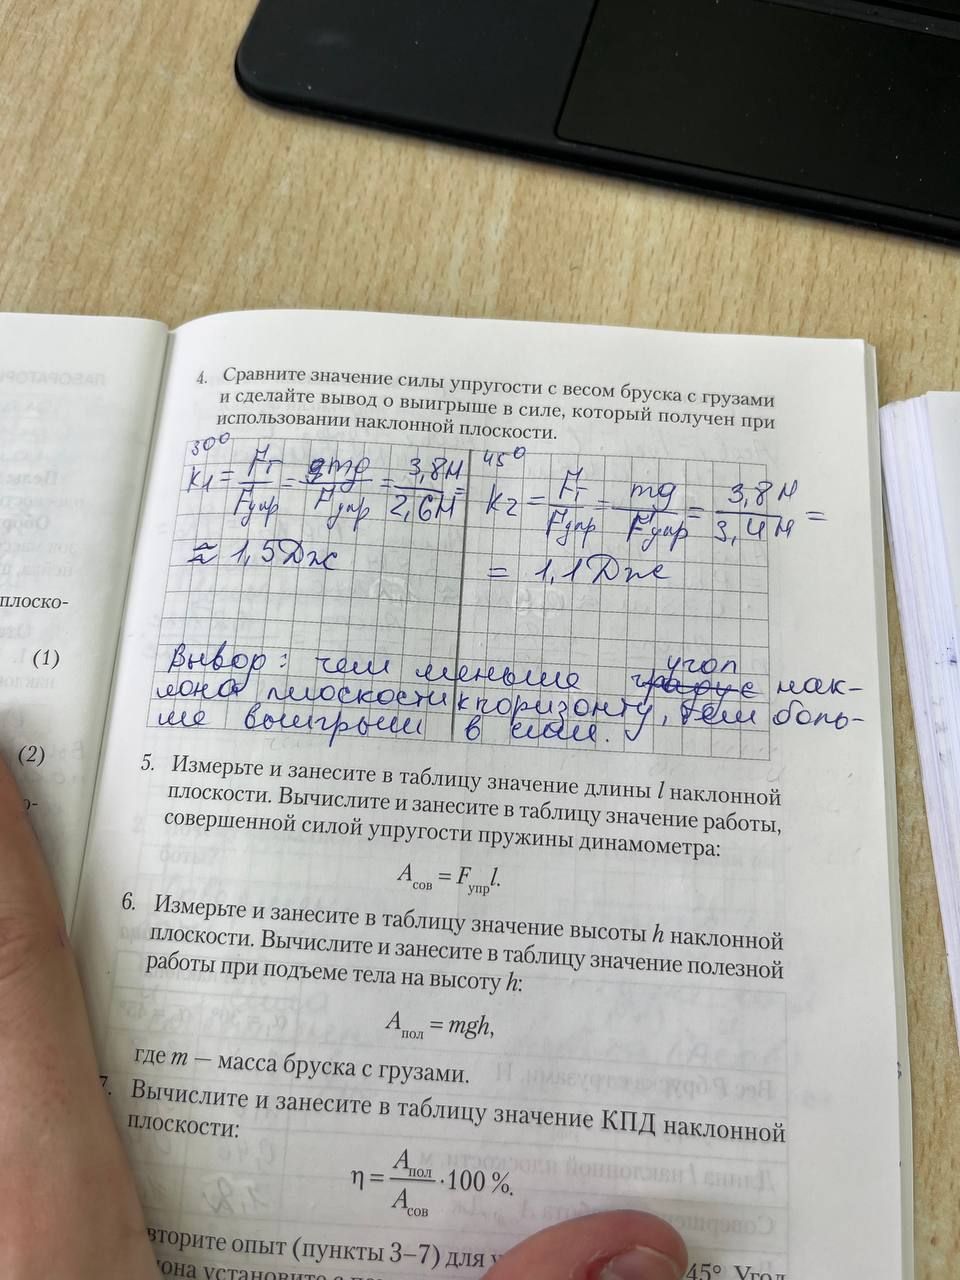 4. Сравните значение силы упругости с весом бруска с грузами
и сделайте вывод о выигрыше в силе, который получен при
использовании наклонной плоскости.
30° 45°
k1 = Fт/Fупр = mg/Fупр = 3,8Н/2,6Н = k2 = Fт/Fупр = mg/Fупр = 3,8Н/3,4Н =
≈ 1,5Дж = 1,1Дж
Вывод: чем меньше угол нак-
лона плоскости к горизонту, тем боль-
ше выигрыш в силе.
5. Измерьте и занесите в таблицу значение длины l наклонной
плоскости. Вычислите и занесите в таблицу значение работы,
совершенной силой упругости пружины динамометра:
Aсов = Fупрl.
6. Измерьте и занесите в таблицу значение высоты h наклонной
плоскости. Вычислите и занесите в таблицу значение полезной
работы при подъеме тела на высоту h:
Aпол = mgh,
где m — масса бруска с грузами.
7. Вычислите и занесите в таблицу значение КПД наклонной
плоскости:
η = Aпол/Aсов · 100 %.
вторите опыт (пункты 3–7) для 45°. Угол
она установите с
плоско-
(1)
(2)